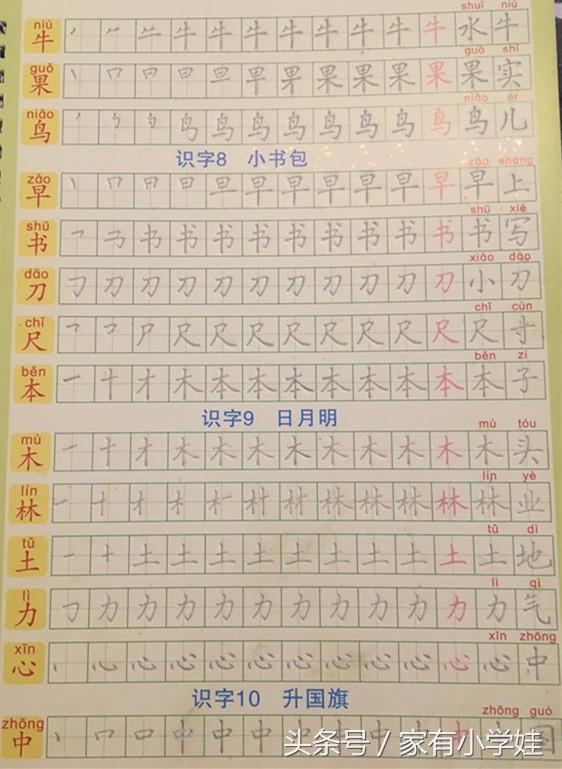 niú shuǐ niú
牛 牛 牛 牛 牛 牛 牛 牛 牛 水 牛
guǒ guǒ shí
果 口 日 旦 早 果 果 果 果 果 实
niǎo niǎo ér
鸟 鸟 鸟 鸟 鸟 鸟 鸟 鸟 鸟 儿
识字8 小书包
zǎo zǎo shàng
早 口 日 旦 早 早 早 早 早 早 早 上
shū shū xiě
书 书 书 书 书 书 书 书 书 书 书 写
dāo xiǎo dāo
刀 刀 刀 刀 刀 刀 刀 刀 刀 刀 刀 小 刀
chǐ chǐ cùn
尺 尸 尺 尺 尺 尺 尺 尺 尺 尺 尺 寸
běn běn zi
本 一 十 才 木 本 本 本 本 本 本 本 本 子
mù mù tóu
木 一 十 才 木 木 木 木 木 木 木 木 木 头
lín lín yè
林 一 十 才 木 林 林 林 林 林 业
tǔ tǔ dì
土 一 十 土 土 土 土 土 土 土 土 土 土 地
lì lì qi
力 力 力 力 力 力 力 力 力 力 力 力 气
xīn xīn zhōng
心 心 心 心 心 心 心 心 心 心 心 中
识字10 升国旗
识字9 日月明
zhōng zhōng guó
中 口 口 中 中 中 中 中 国
头条号 / 家有小学娃